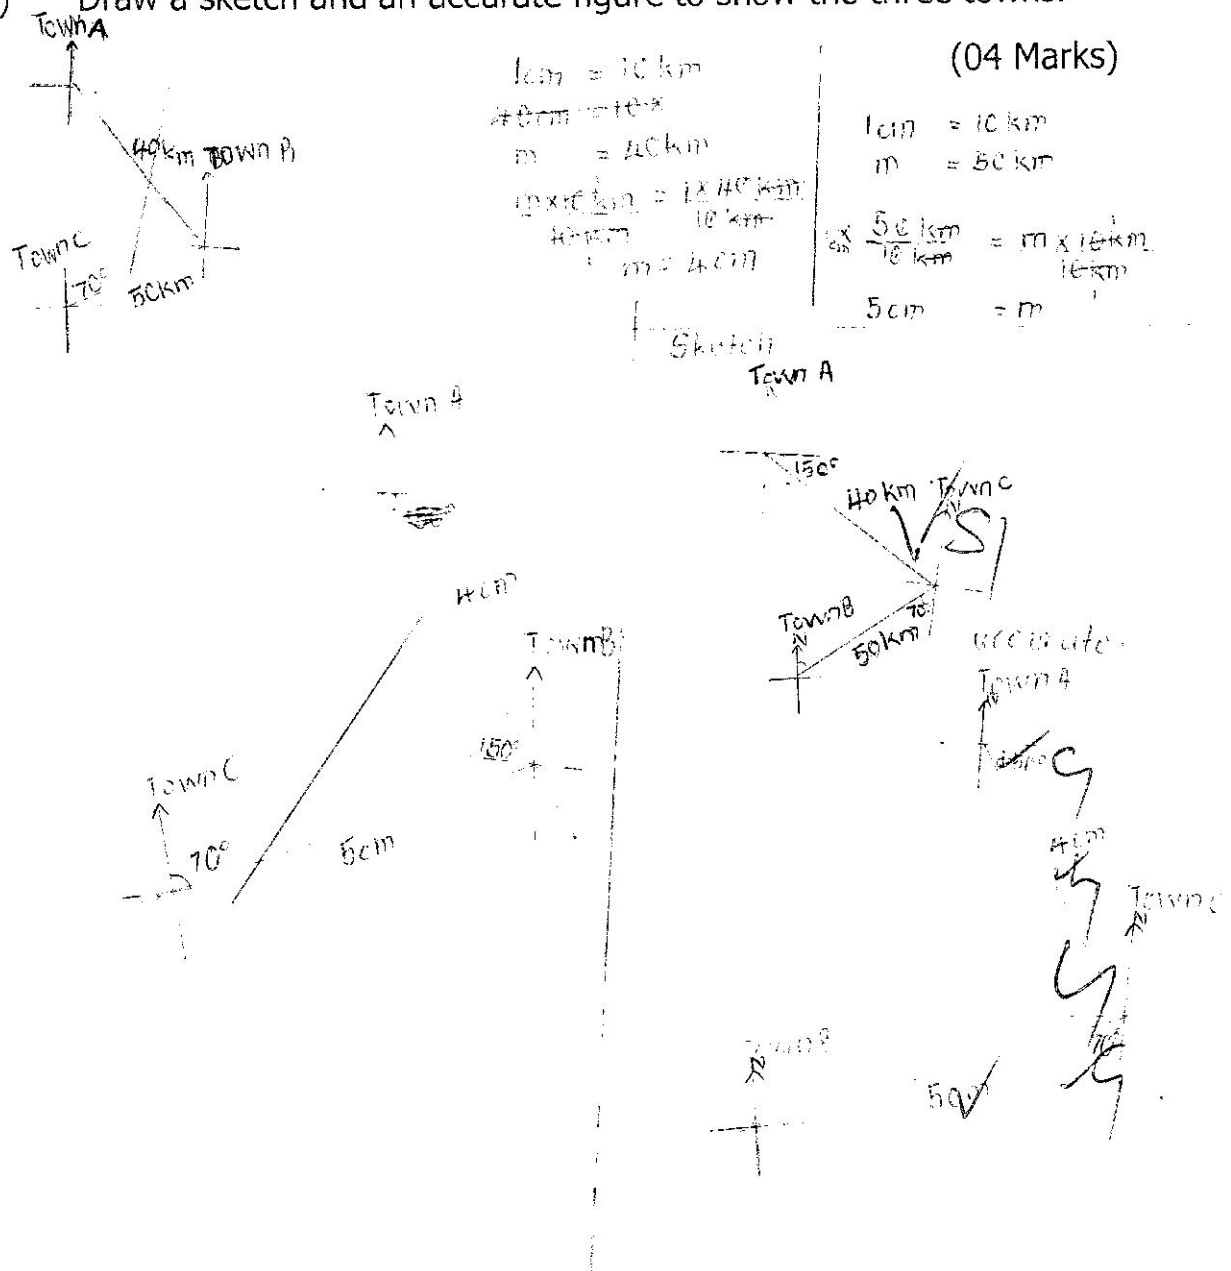 ) Draw a sketch and an accurate figure to show the three towns.
(04 Marks)
Town A
40km Town B
Town C
70°
50km
1cm = 10km
40cm = 10x
m = 40km
m×10km = 1×40km
10km 10km
1
m = 4cm
1cm = 10km
m = 50km
1cm × 50km = m × 10km
10km 10km
1
5cm = m
Sketch
Town A
150°
40km Town C
S
Town B
50km
70°
Town A
4cm
Town B
150°
Town C
70°
5cm
accurate
Town A
4cm
Town C
70°
Town B
5cm